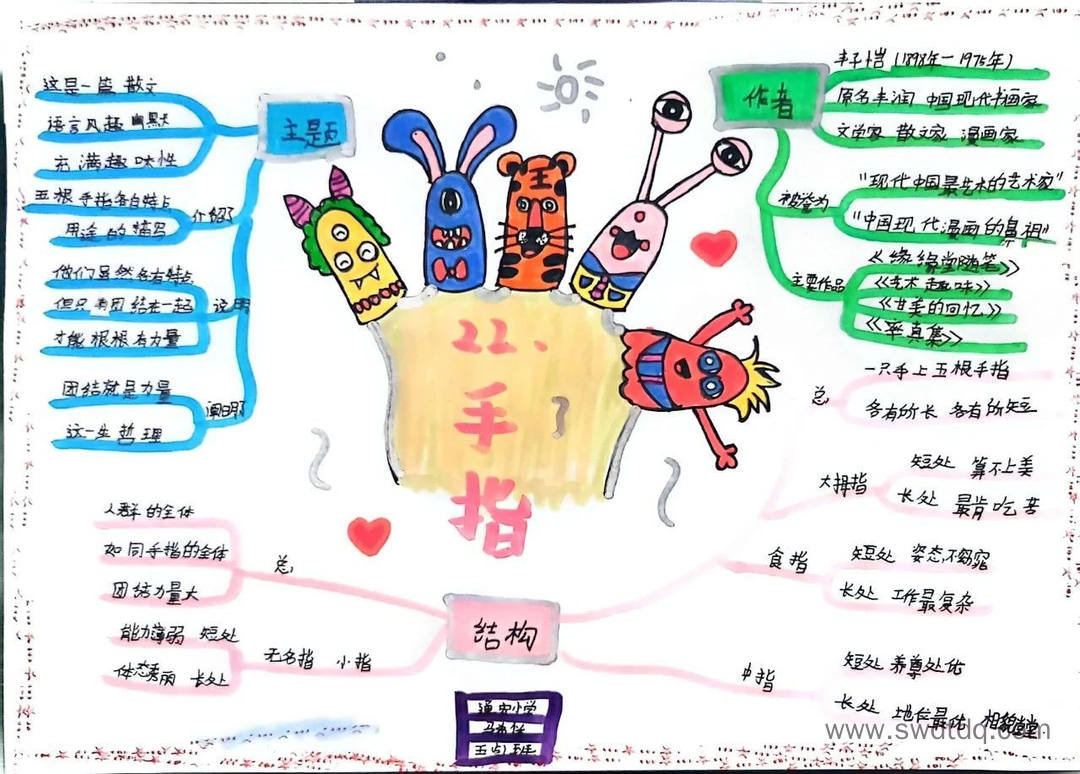 22、
手
指
主题
这是一篇 散文
语言风趣幽默
充满趣味性
介绍了
五根手指各自特点
用途的描写
说明
他们虽然各有特点
但只有团结在一起
才能根根有力量
阐明了
团结就是力量
这一生哲理
作者
丰子恺 (1898年—1975年)
原名丰润 中国现代书画家
文学家 散文家 漫画家
被誉为
"现代中国最艺术的艺术家"
"中国现代漫画的鼻祖"
主要作品
《缘缘堂随笔》
《艺术趣味》
《甘美的回忆》
《率真集》
结构
总
一只手上五根手指
各有所长 各有所短
大拇指
短处 算不上美
长处 最肯吃苦
食指
短处 姿态不窈窕
长处 工作最复杂
中指
短处 养尊处优
长处 地位最优 相貌堂堂
无名指 小指
能力薄弱 短处
体态秀丽 长处
总
人群的全体
如同手指的全体
团结力量大
王
小学
www.swdtdq.com